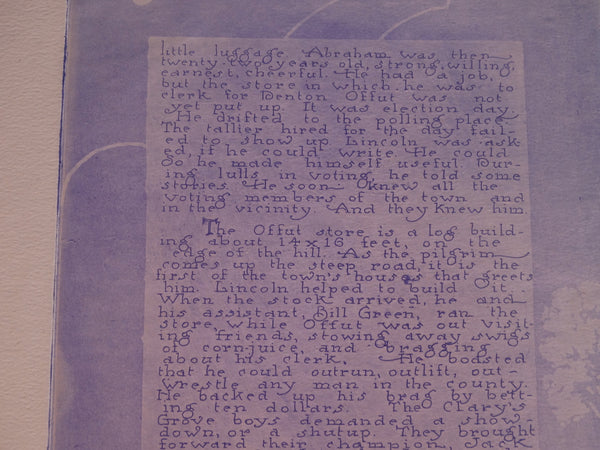 little luggage. Abraham was then
twenty-two years old, strong, willing,
earnest, cheerful. He had a job,
but the store in which he was to
clerk for Denton Offut was not
yet put up. It was election day.
He drifted to the polling place.
The tallier hired for the day fail-
ed to show up. Lincoln was ask-
ed, if he could write. He could.
So he made himself useful. Dur-
ing lulls in voting, he told some
stories. He soon knew all the
voting members of the town and
in the vicinity. And they knew him.
The Offut store is a log build-
ing about 14x16 feet, on the
edge of the hill. As the pilgrim
comes up the steep road, it is the
first of the town's houses that greets
him. Lincoln helped to build it.
When the stock arrived, he and
his assistant, Bill Green, ran the
store, while Offut was out visit-
ing friends, stowing away swigs
of corn-juice, and bragging
about his clerk. He boasted
that he could outrun, outlift, out-
wrestle any man in the county.
He backed up his brag by bett-
ing ten dollars. The Clary's
Grove boys demanded a show-
down, or a shutup. They brought
forward their champion, Jack